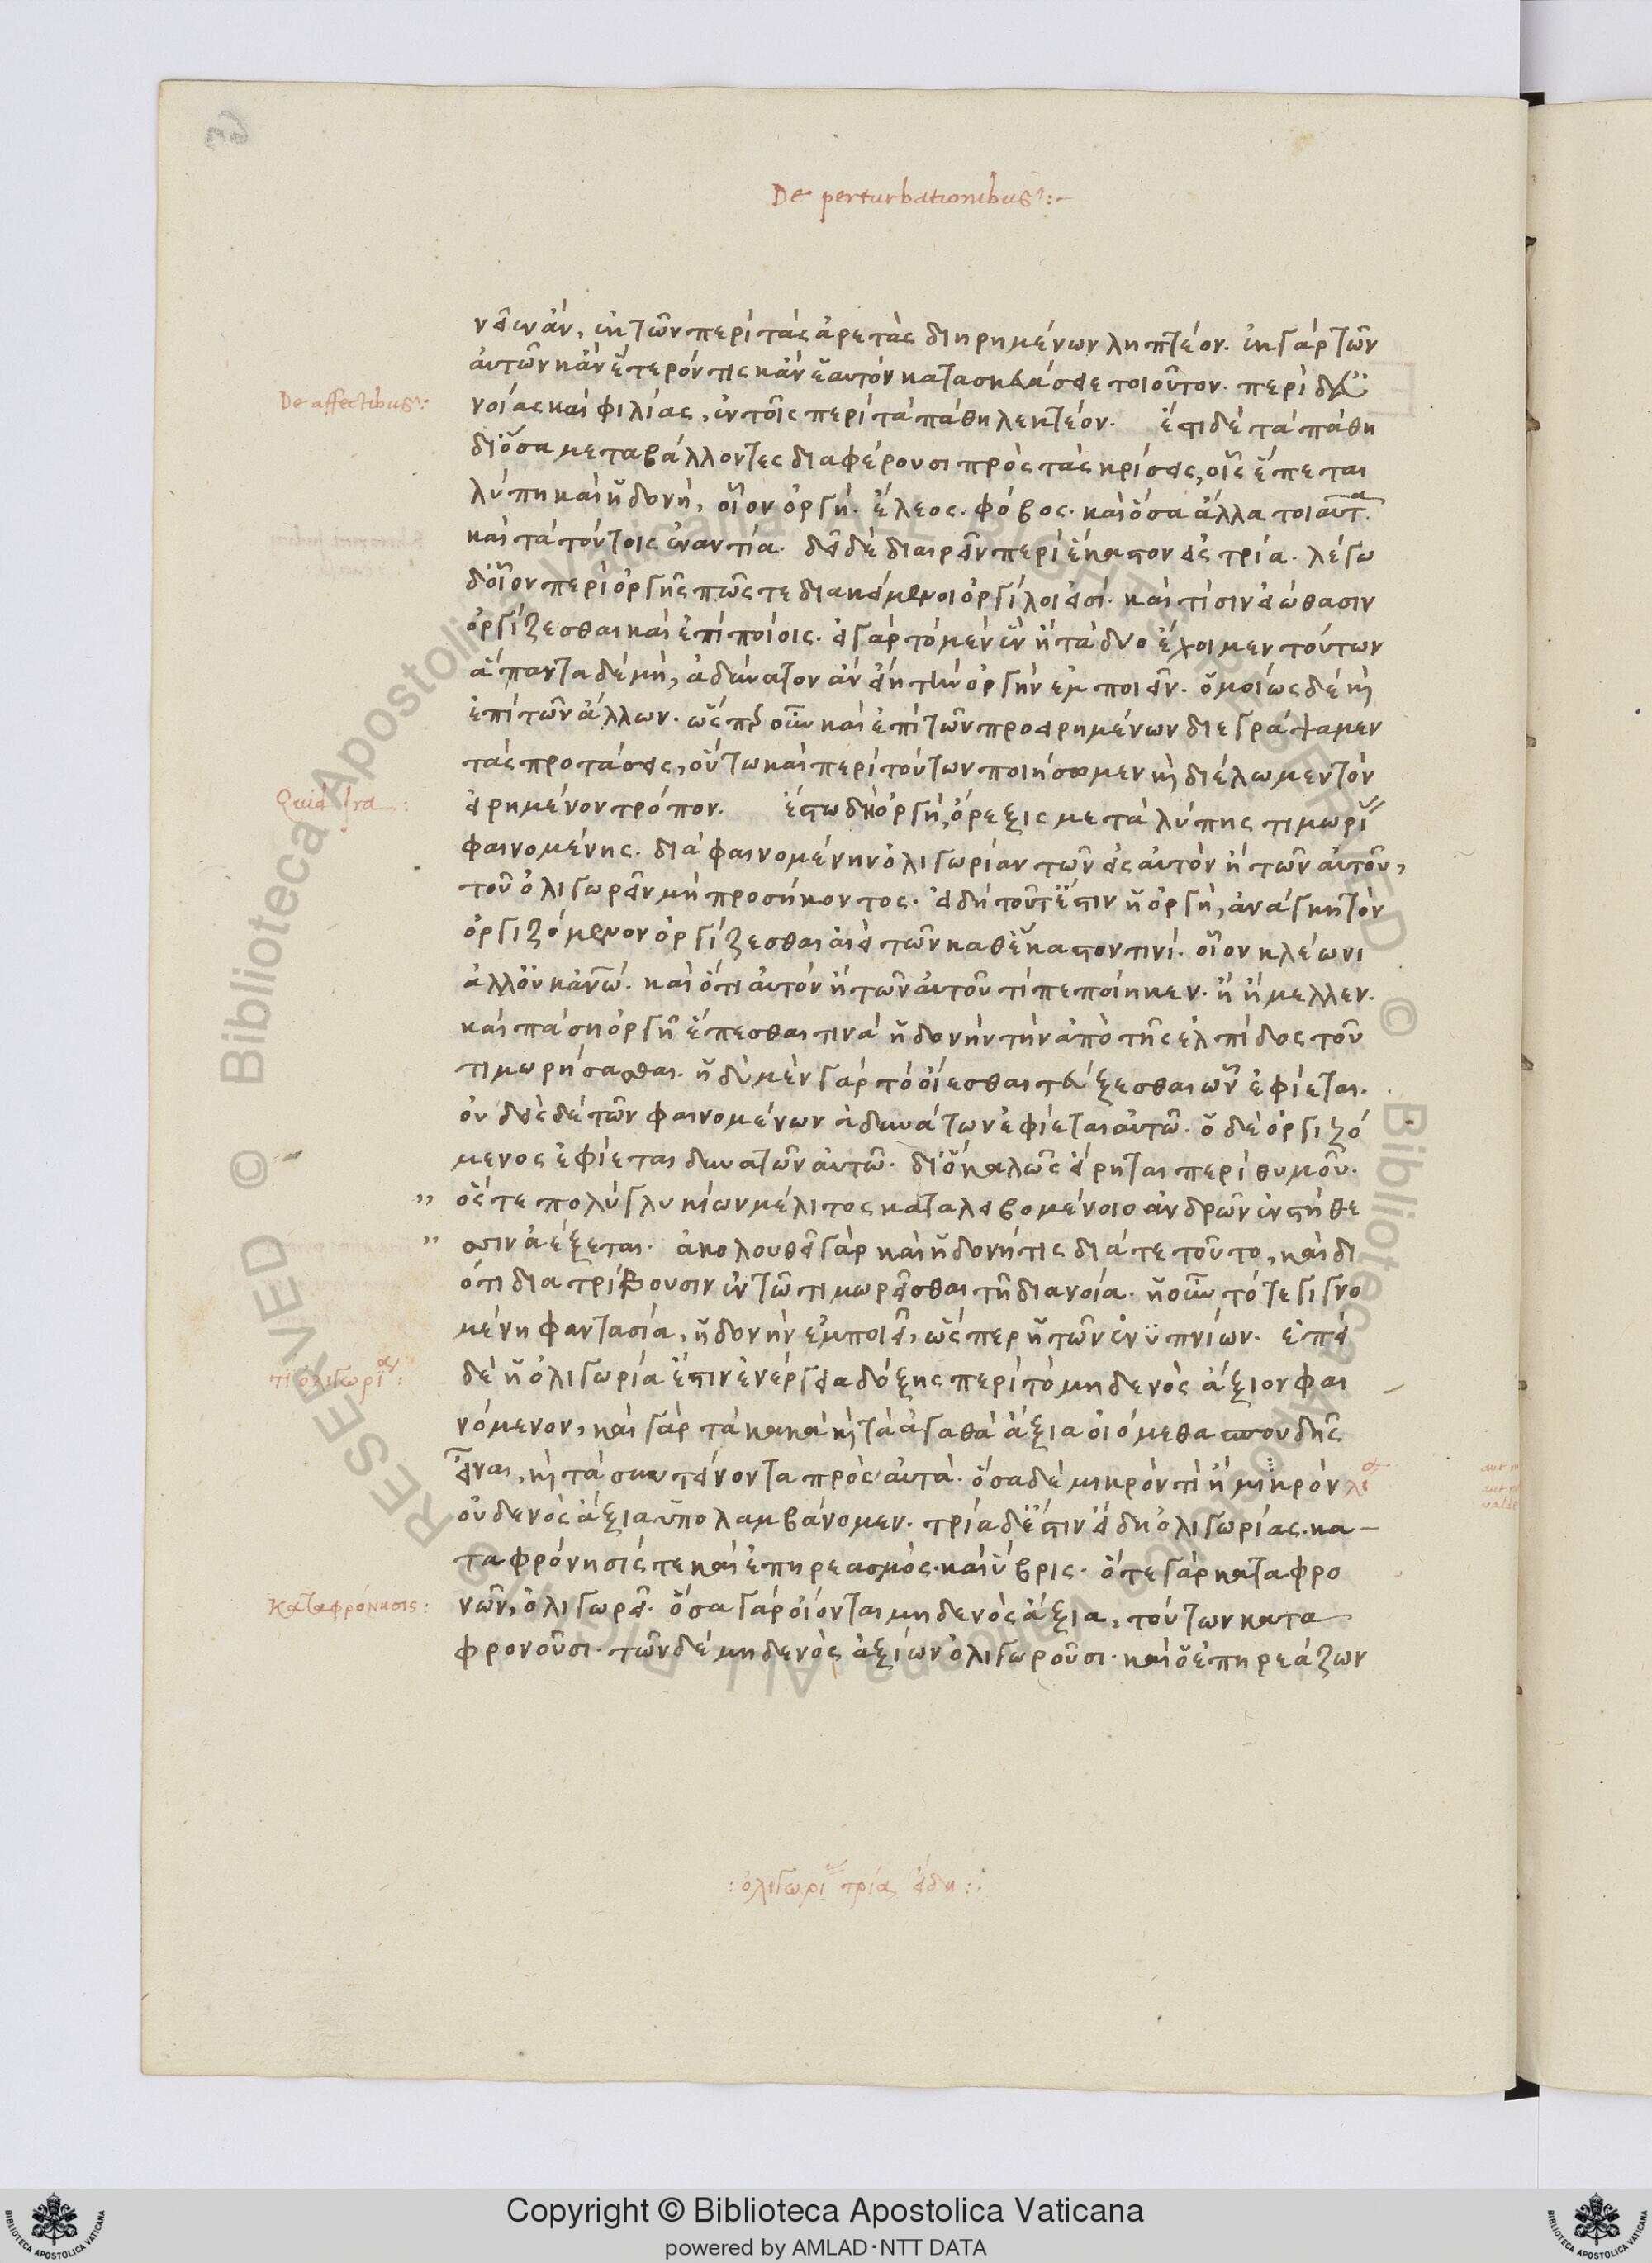 De perturbationibus:-
νεῖεν ἄν, ἐκ τῶν περὶ τὰς ἀρετὰς διῃρημένων ληπτέον. ἐκ γὰρ τῶν
αὐτῶν κἂν ἕτερόν τις κἂν ἑαυτὸν κατασκευάσειε τοιοῦτον. περὶ δ' εὐ
De affectibus:
νοίας καὶ φιλίας, ἐν τοῖς περὶ τὰ πάθη λεκτέον. ἔστι δὲ τὰ πάθη
δι' ὅσα μεταβάλλοντες διαφέρουσι πρὸς τὰς κρίσεις, οἷς ἕπεται
λύπη καὶ ἡδονή, οἷον ὀργή. ἔλεος. φόβος. καὶ ὅσα ἄλλα τοιαῦτα.
καὶ τὰ τούτοις ἐναντία. δεῖ δὲ διαιρεῖν περὶ ἕκαστον εἰς τρία. λέγω
δ' οἷον περὶ ὀργῆς πῶς τε διακείμενοι ὀργίλοι εἰσί. καὶ τίσιν εἰώθασιν
ὀργίζεσθαι καὶ ἐπὶ ποίοις. εἰ γὰρ τὸ μὲν ἓν ἢ τὰ δύο ἔχοιμεν τούτων
ἅπαντα δὲ μή, ἀδύνατον ἂν εἴη τὴν ὀργὴν ἐμποιεῖν. ὁμοίως δὲ κὶ
ἐπὶ τῶν ἄλλων. ὥσπερ οὖν καὶ ἐπὶ τῶν προειρημένων διεγράψαμεν
τὰς προτάσεις, οὕτω καὶ περὶ τούτων ποιήσωμεν κὶ διέλωμεν τὸν
Quid Ira:
εἰρημένον τρόπον. ἔστω δὴ ὀργή, ὄρεξις μετὰ λύπης τιμωρί
φαινομένης. διὰ φαινομένην ὀλιγωρίαν τῶν εἰς αὐτὸν ἢ τῶν αὐτοῦ,
τοῦ ὀλιγωρεῖν μὴ προσήκοντος. εἰ δὴ τοῦτ' ἔστιν ἡ ὀργή, ἀνάγκη τὸν
ὀργιζόμενον ὀργίζεσθαι ἀεὶ τῶν καθ' ἕκαστον τινί. οἷον κλέωνι
ἀλλ' οὐκ ἀνῶ. καὶ ὅτι αὐτὸν ἢ τῶν αὐτοῦ τί πεποίηκεν. ἢ ἤμελλεν.
καὶ πάσῃ ὀργῇ ἕπεσθαι τινὰ ἡδονὴν τὴν ἀπὸ τῆς ἐλπίδος τοῦ
τιμωρήσασθαι. ἡδὺ μὲν γὰρ τὸ οἴεσθαι τεύξεσθαι ὧν ἐφίεται.
οὐδεὶς δὲ τῶν φαινομένων ἀδυνάτων ἐφίεται αὐτῷ. ὁ δὲ ὀργιζό
μενος ἐφίεται δυνατῶν αὐτῷ. διὸ καλῶς εἴρηται περὶ θυμοῦ.
" ὅς τε πολὺ γλυκίων μέλιτος καταλειβομένοιο ἀνδρῶν ἐν στήθε
" σσιν ἀέξεται. ἀκολουθεῖ γὰρ καὶ ἡδονή τις διά τε τοῦτο, καὶ δι
ότι διατρίβουσιν ἐν τῷ τιμωρεῖσθαι τῇ διανοίᾳ. ἡ οὖν τότε γιγνο
μένη φαντασία, ἡδονὴν ἐμποιεῖ, ὥσπερ ἡ τῶν ἐνυπνίων. ἐπεὶ
τί ὀλιγωρία:
δὲ ἡ ὀλιγωρία ἔστιν ἐνέργεια δόξης περὶ τὸ μηδενὸς ἄξιον φαι
νόμενον, καὶ γὰρ τὰ κακὰ κὶ τὰ ἀγαθὰ ἄξια οἰόμεθα σπουδῆς
εἶναι, κὶ τὰ συντείνοντα πρὸς αὐτά. ὅσα δὲ μικρόν τι ἢ μικρόν
οὐδενὸς ἄξια ὑπολαμβάνομεν. τρία δ' ἔστιν εἴδη ὀλιγωρίας. κα-
ταφρόνησίς τε καὶ ἐπηρεασμός. καὶ ὕβρις. ὅ τε γὰρ καταφρο
Καταφρόνησις:
νῶν, ὀλιγωρεῖ. ὅσα γὰρ οἴονται μηδενὸς ἄξια, τούτων κατα
φρονοῦσι. τῶν δὲ μηδενὸς ἀξίων ὀλιγωροῦσι. καὶ ὁ ἐπηρεάζων
: ὀλιγωρι τρία εἴδη :.
RESERVED © Biblioteca Apostolica Vaticana
Copyright © Biblioteca Apostolica Vaticana
powered by AMLAD·NTT DATA
BIBLIOTECA APOSTOLICA VATICANA
BIBLIOTECA APOSTOLICA VATICANA